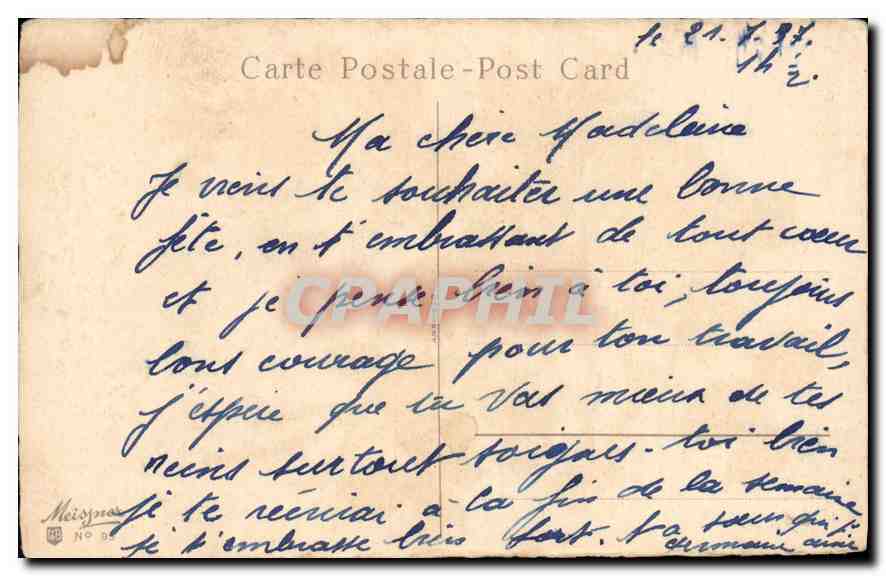 le 21.7.37.
14 h ½.
Carte Postale - Post Card
Ma chère Madeleine
Je viens te souhaiter une bonne
fête, en t'embrassant de tout cœur
et je pense bien à toi, toujours
bons courage pour ton travail,
j'espère que tu vas mieux de tes
reins surtout soignes-toi bien
je te reverai à la fin de la semaine
je t'embrasse bien fort. Ta sœur qui t'
aime
CPARAMA
Meissner
No 92